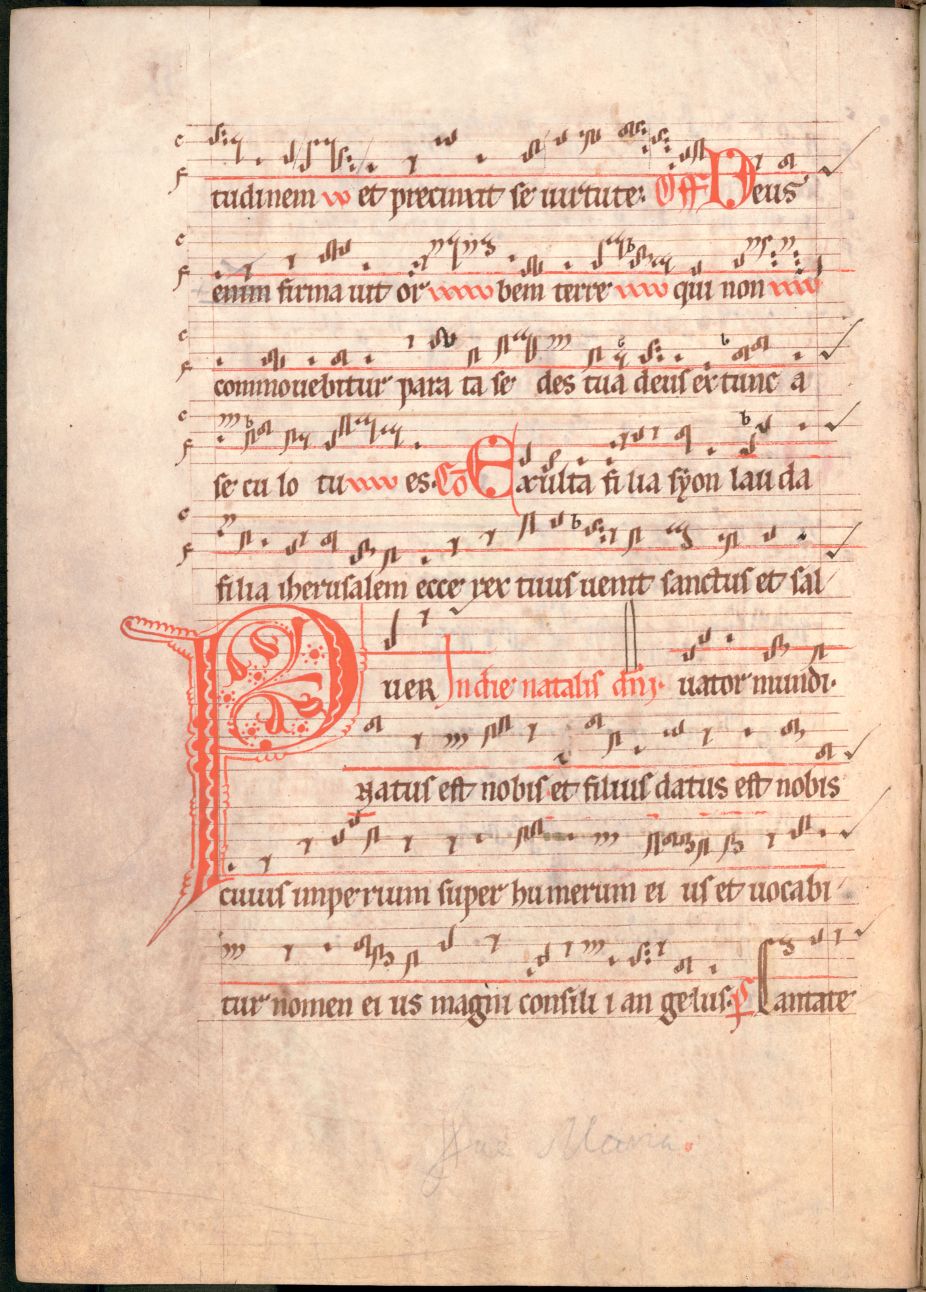 tudinem et precinxit se uirtute: Off Deus
enim firmauit orbem terre qui non
commouebitur parata sedes tua deus ex tunc a
seculo tu es. Cō Exulta filia syon lauda
filia iherusalem ecce rex tuus uenit sanctus et sal
PUER In die natalis dñi. uator mundi.
natus est nobis et filius datus est nobis
cuius imperium super humerum eius et uocabi
tur nomen eius magni consilii angelus. ps Cantate
Ave Maria.